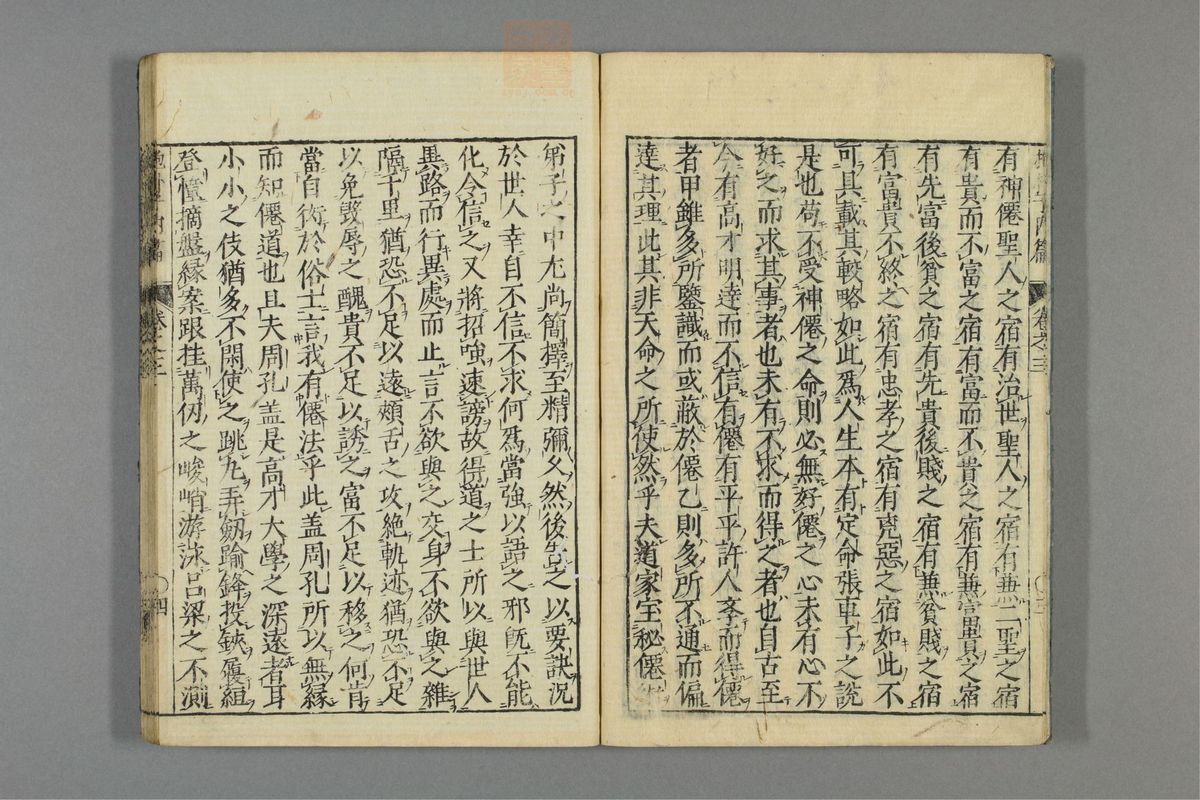 有神僊聖人之宿有治世聖人之宿有兼二聖之宿
有貴而不富之宿有富而不貴之宿有兼富貴之宿
有先富後貧之宿有先貴後賤之宿有兼貧賤之宿
有富貴不終之宿有忠孝之宿有兇惡之宿如此不
可具載其較略如此爲人生本有定命張車子之說
是也苟不受神僊之命則必無好僊之心未有心不
好之而求其事者也未有不求而得之者也自古至
今有高才明達而不信有僊有平平許人李而得僊
者甲雖多所鑒識而或蔽於僊乙則多所不通而偏
達其理此其非天命之所使然乎夫道家宝秘僊術
弟子之中尤尚簡擇至精彌久然後告之以要訣況
於世人幸自不信不求何爲當強以語之邪既不能
化令信之又將招嗤速謗故得道之士所以與世人
異路而行異處而止言不欲與之交身不欲與之雜
隔千里猶恐不足以遠煩舌之攻絶軌迹猶恐不足
以免毀辱之醜貴不足以誘之富不足以移之何肯
當自衒於俗士言我有僊法乎此盖周孔所以無縁
而知僊道也且夫周孔盖是高才大學之深遠者耳
小小之伎猶多不閑使之跳丸弄劒踰鋒投鋏履絙
登幢擿盤縁案跟挂萬仞之峻峭游泳呂梁之不測
内篇
卷之三
四